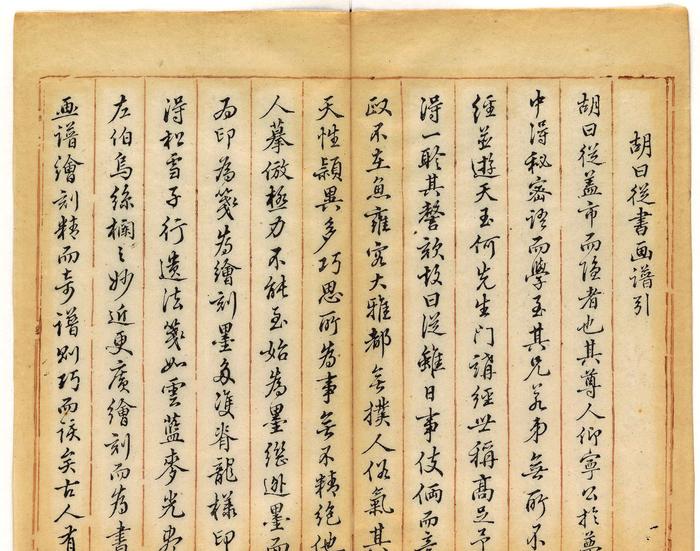 胡曰從書画譜引
胡曰從盖市而隐者也其尊人仰寧公於
中得秘密语而學至其兄若弟無所不
經並遊天玉何先生門講經世稱高足予
得一聆其謦欬故曰従雖日事伎俩而
政不在魚雍容大雅都無撲人俗氣其
天性颖異多巧思所為事無不精绝他
人摹倣極力不能至始為墨継逊墨而
為印為箋為繪刻墨多双脊龍樣印
得松雪子行遗法箋如雲藍麥光
左伯烏絲欄之妙近更廣繪刻而為書
画譜繪刻精而奇譜則巧而该矣古人有